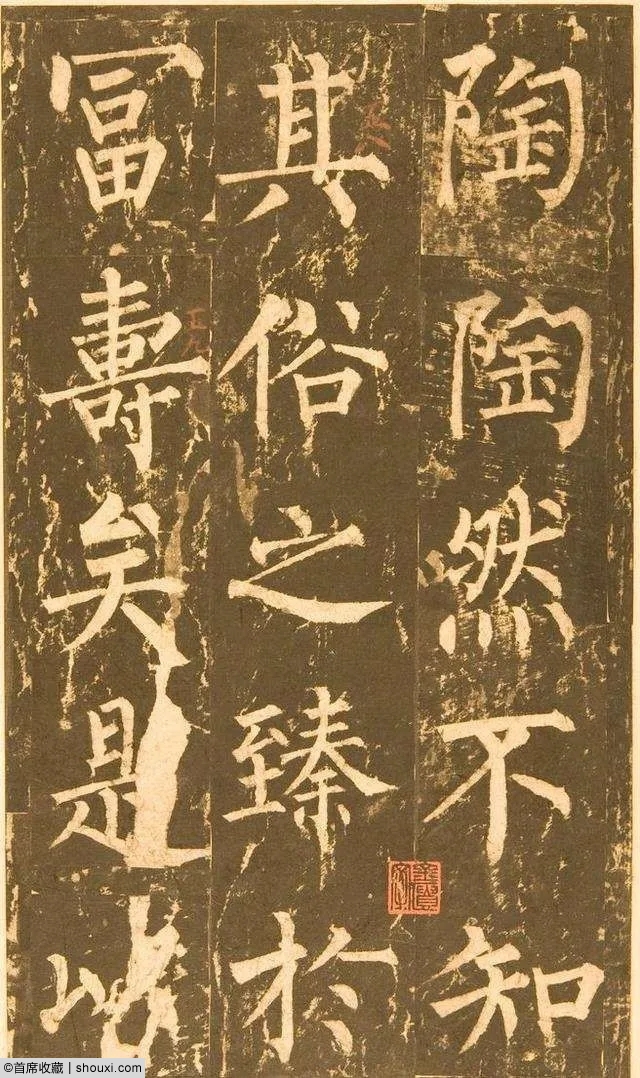 陶陶然不知
其俗之臻於
冨壽矣是
©首席收藏 | shouxi.com